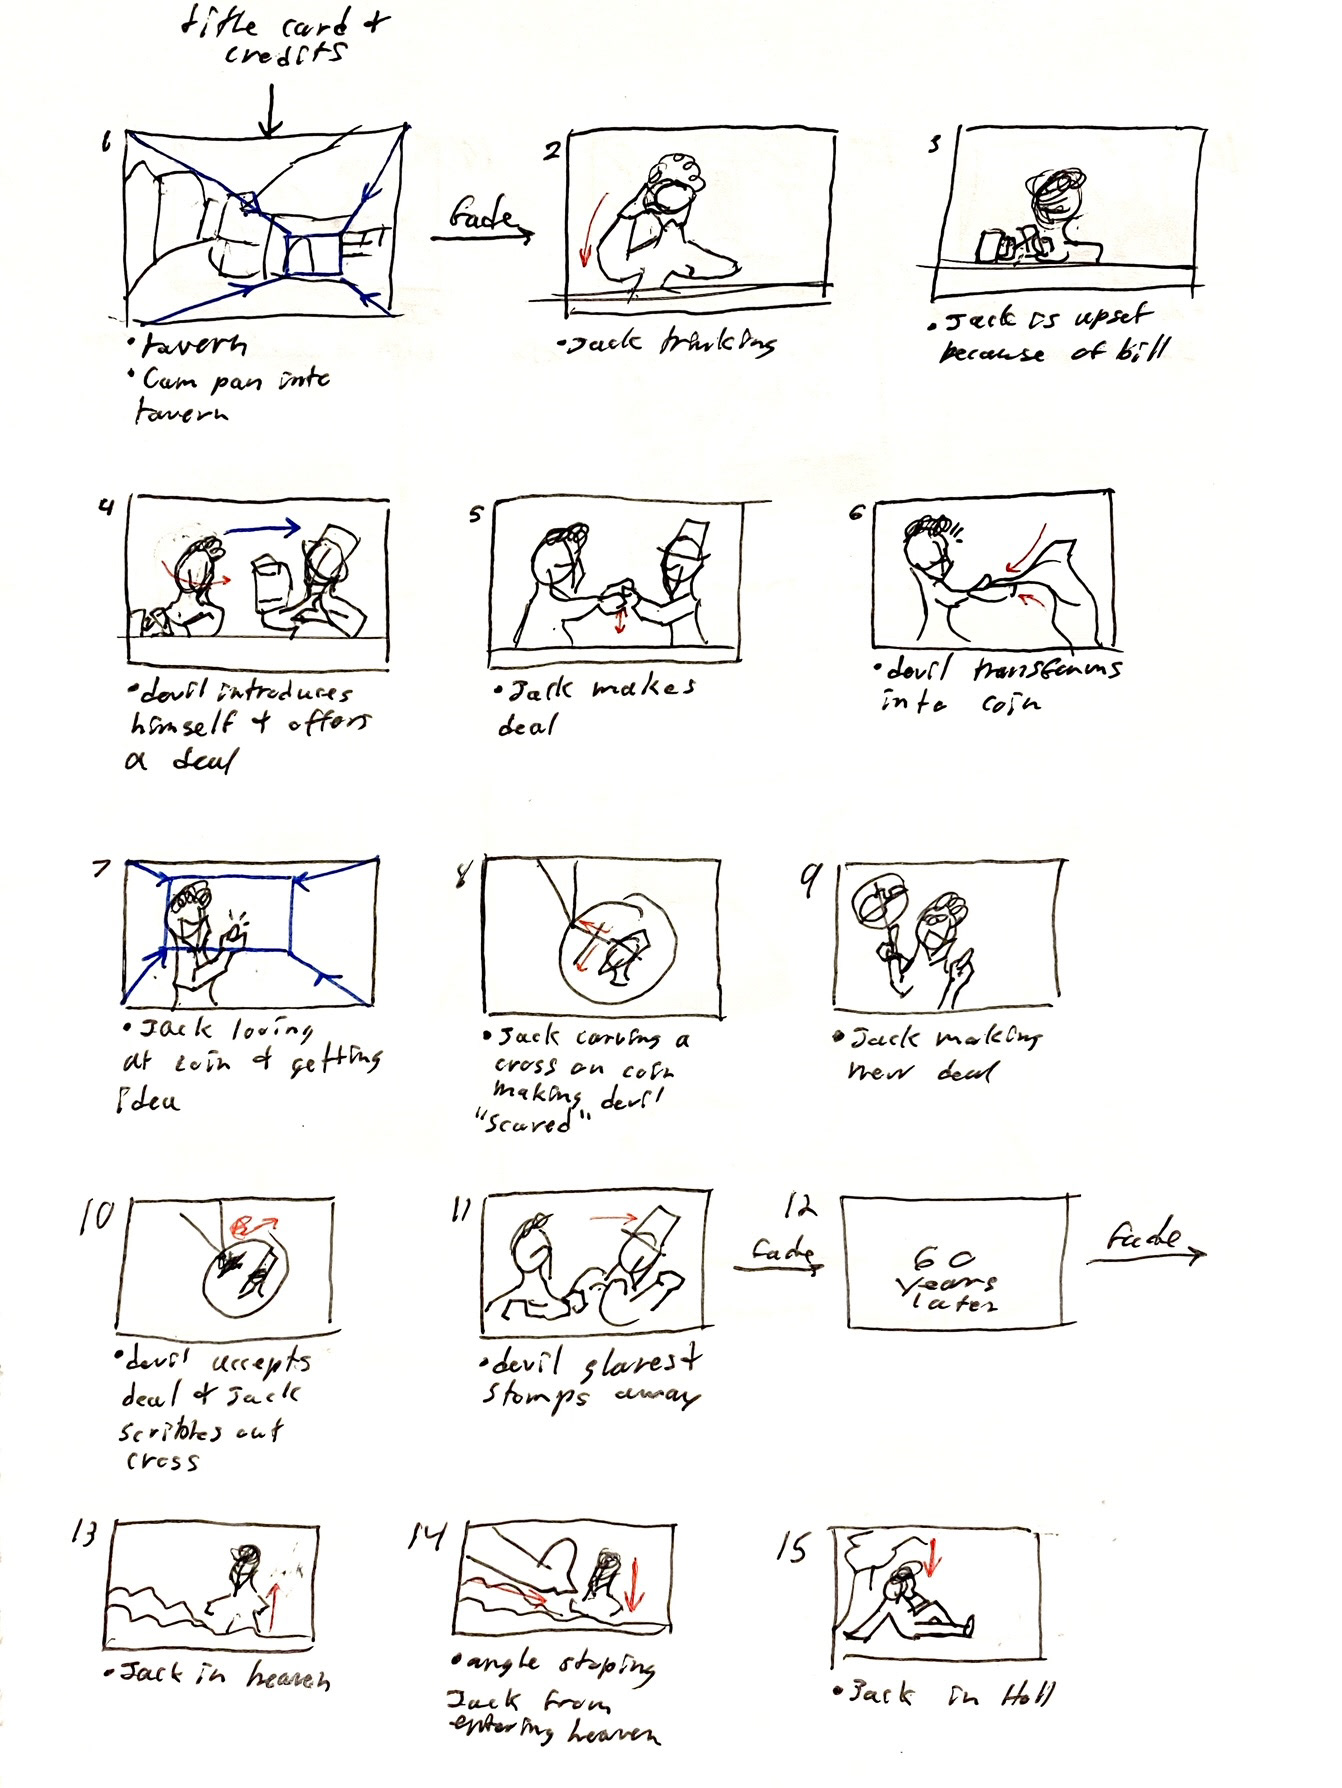 title card +
credits
1
fade
2
3
• tavern
• Cam pan into
tavern
• Jack trinking
• Jack is upset
because of bill
4
5
6
• devil introduces
himself + offers
a deal
• Jack makes
deal
• devil transforms
into coin
7
8
9
• Jack looing
at coin + getting
idea
• Jack carving a
cross on coin
making devil
"scared"
• Jack making
new deal
10
11
12
fade
60
years
later
fade
• devil accepts
deal + Jack
scribbles out
cross
• devil glares +
stomps away
13
14
15
• Jack in heaven
• angle stoping
Jack from
entering heaven
• Jack in Hell